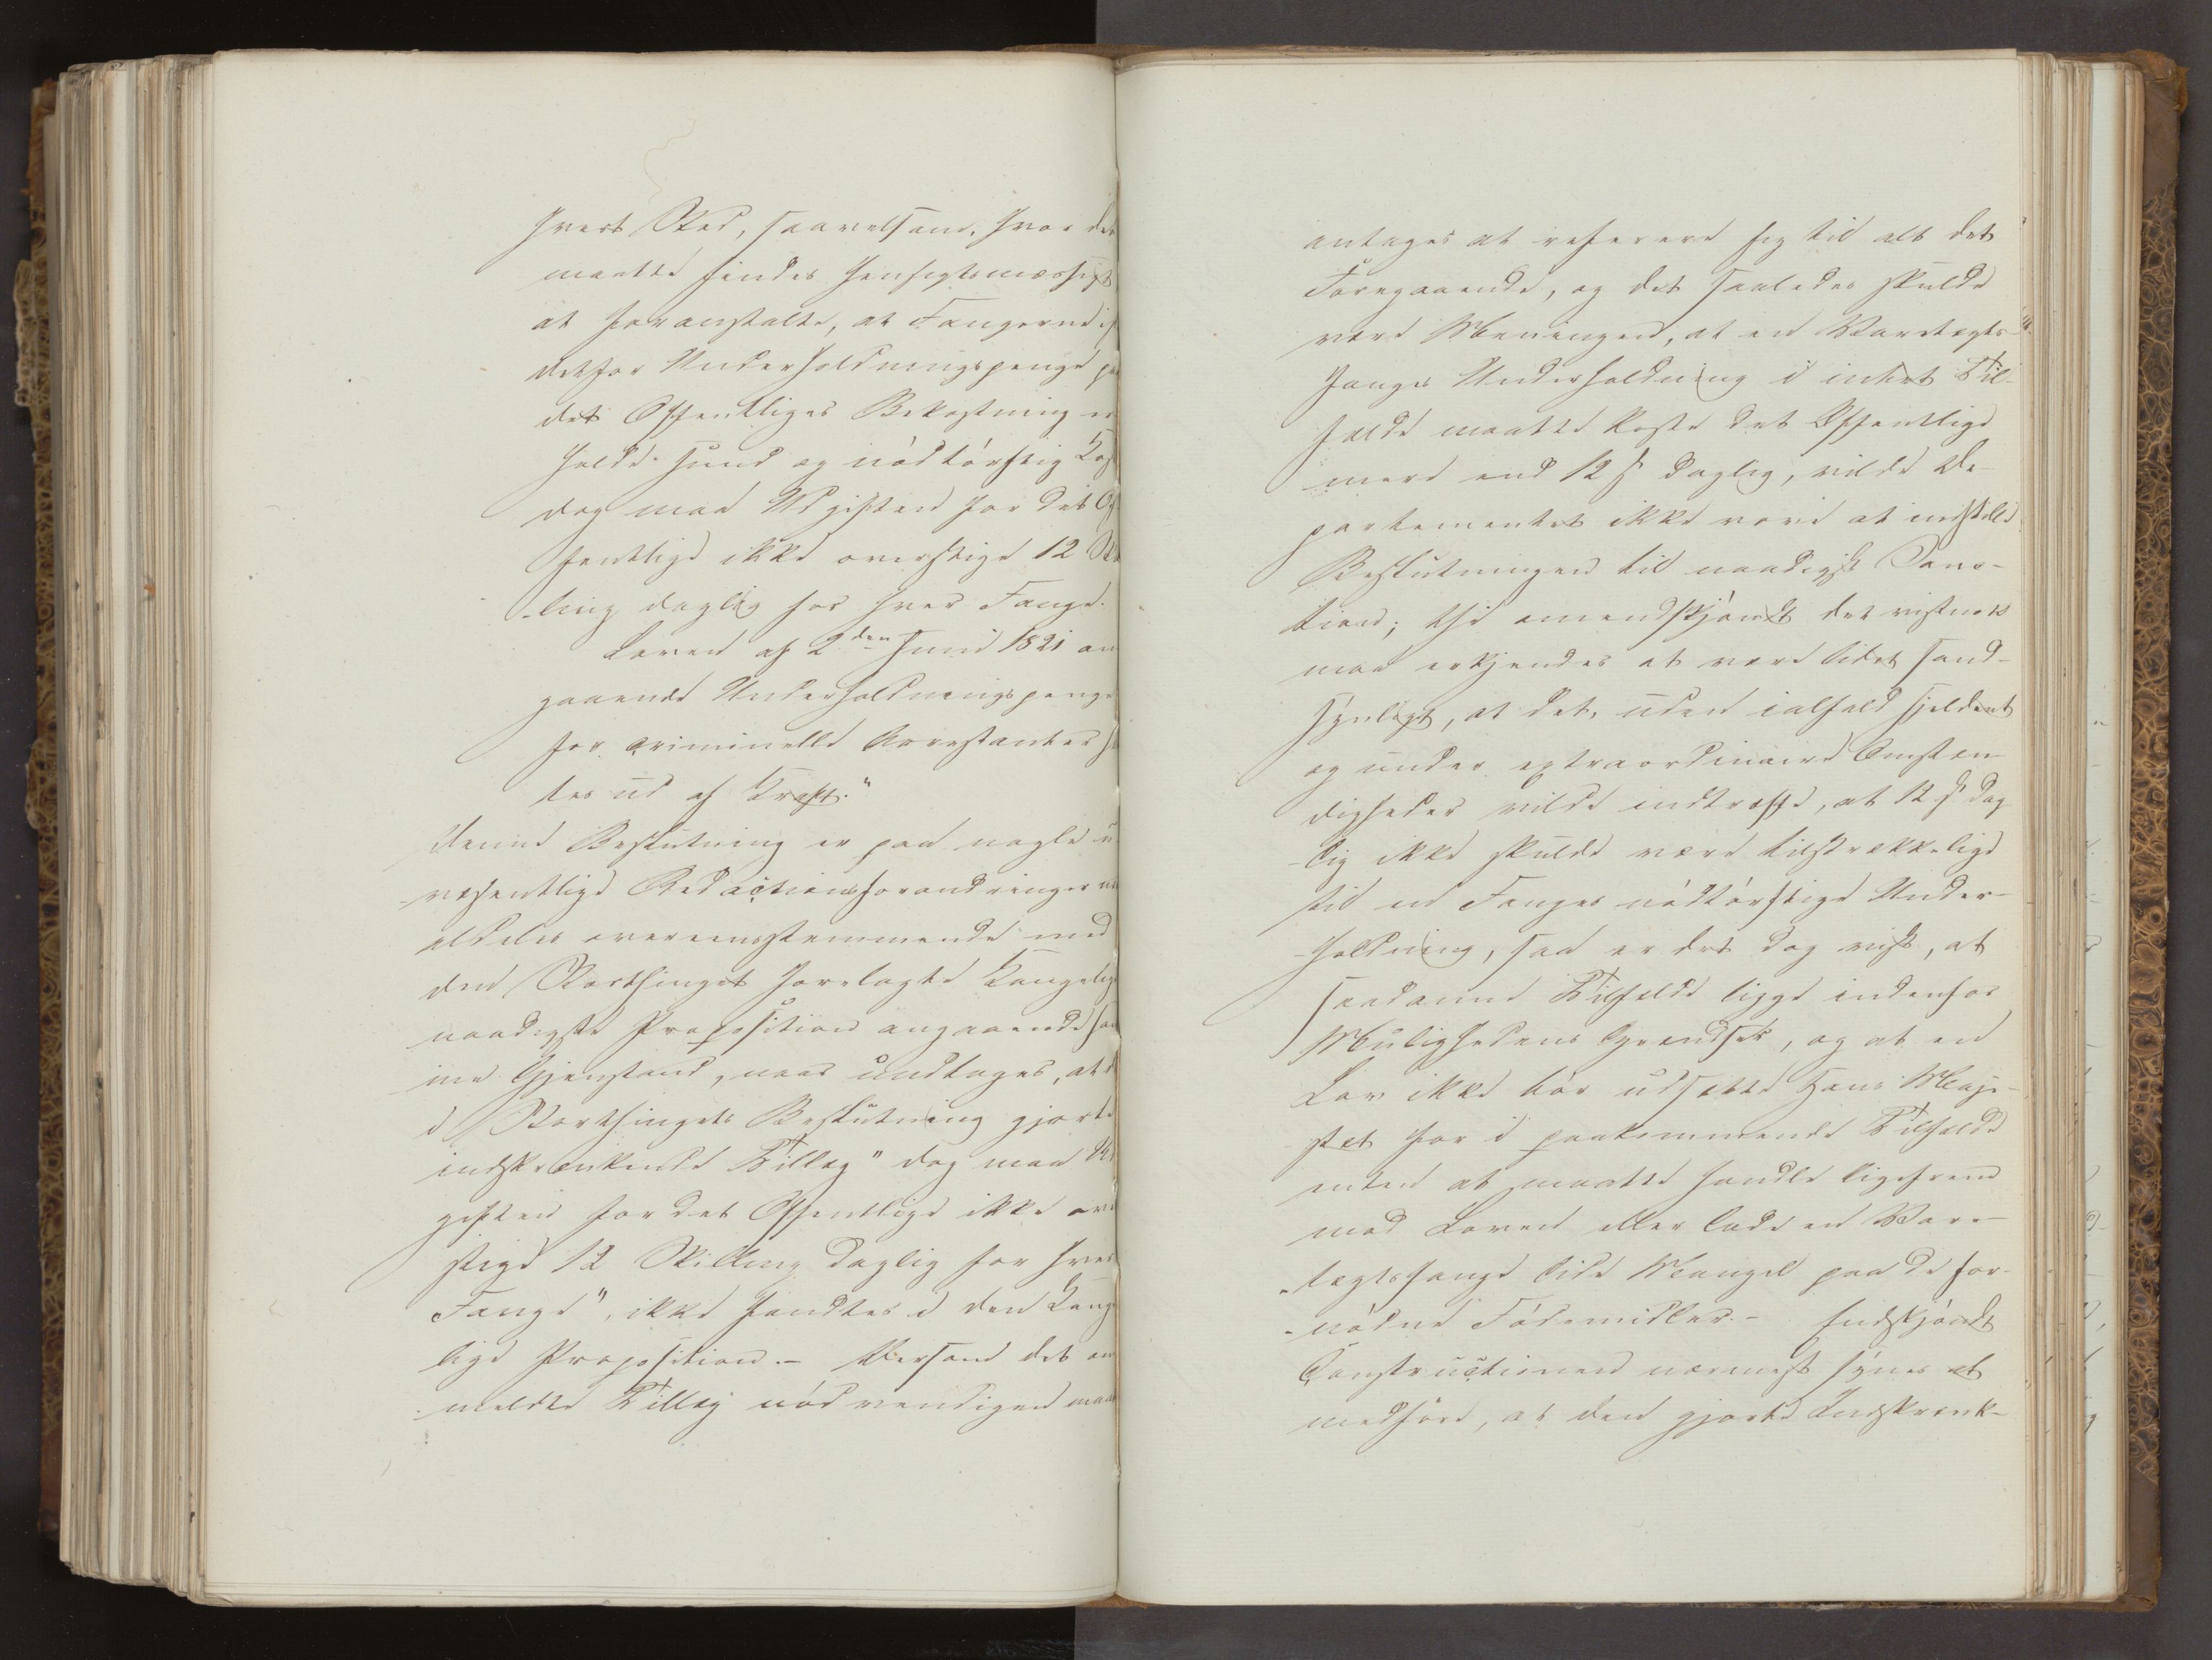 hvert Sted, saavelsom, hvor det
maatte findes Hensigtsmæssigt
at foranstalte, at Fangerne i
detfor Underholdningspenge paa
det Offentliges Bekostning er
holde sund og nødtørftig Kost
dog maa Udgiften for det Of
fentlige ikke overstige 12 Skil
ling daglig for hver Fange.
Loven af 2den Juni 1821 an
gaaende Underholdningspenge
for criminelle Arrestanter sæt
tes ud af Kraft."
Denne Beslutning er paa nogle u
væsentlige Redactionsforandringer nær
aldeles overeensstemmende med
den Storthinget forelagte Kongelige
naadigste Proposition angaaende sam
me Gjenstand, naar undtages, at d
i Storthingets Beslutning gjorte
indskrænkende Tillæg "dog maa Ud
giften for det Offentlige ikke over
stige 12 Skilling daglig for hver
Fange", ikke fandtes i den Konge
lige Proposition. – Dersom det an
meldte Tillæg nødvendigen maa
antages at referere sig til alt det
Foregaaende, og det saaledes skulde
være Meningen, at en Varetægts-
fanges Underholdning i intet Til-
fælde maatte koste det Offentlige
mere end 12 ß daglig, vilde De-
partementet ikke vove at indstille
Beslutningen til naadigst Sanc-
tion; thi omendskjøndt det vistnok
maa erkjendes at være lidet sand-
synligt, at det, uden ialfald sjeldent
og under extraordinaire Omstæn
digheder vilde indtræffe, at 12 ß dag
lig ikke skulde være tilstrækkelige
til en Fanges nødtørftige Under-
holdning, saa er det dog vist, at
saadanne Tilfælde ligge indenfor
Mulighedens Grændser, og at en
Lov ikke bør udsætte Hans Maje-
stæt for i paakommende Tilfælde
enten at maatte handle ligefrem
mod Loven eller lade en Vare-
tægtsfange lide Mangel paa de for-
nødne Fødemidler. – Endskjøndt
Constructionen nærmest synes at
medføre, at den gjorte Indskrænk-